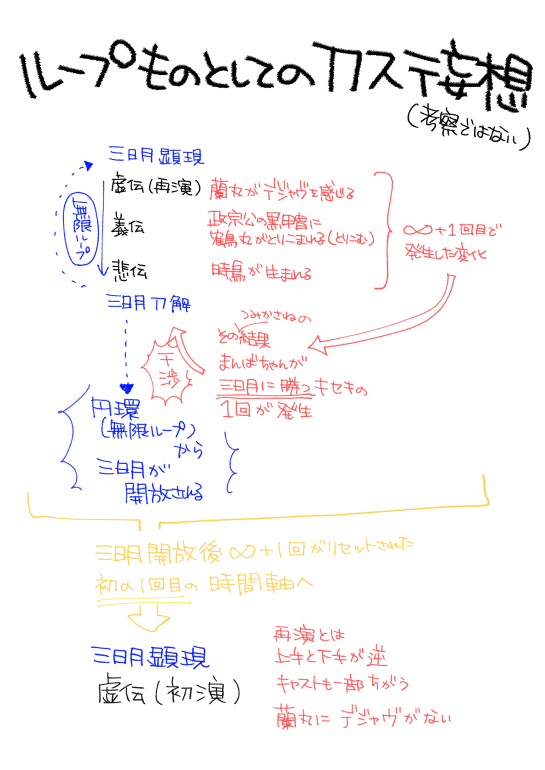 ループものとしてのカステ妄想
(考察ではない)
三日月顕現
虚伝(再演) 蘭丸がデジャヴを感じる
無限ループ
義伝 政宗公の黒甲冑に
鶴丸がとりこまれる(とりこむ)
悲伝 時鳥が生まれる
∞+1回目で
発生した変化
三日月刀解
つみかさねの
その結果
まんばちゃんが
三日月に勝つキセキの
1回が発生
干渉
円環
(無限ループ)
から
三日月が
開放される
三日月開放後∞+1回がリセットされた
初の1回目の時間軸へ
三日月顕現
虚伝(初演)
再演とは
上手と下手が逆
キャストも一部ちがう
蘭丸にデジャヴがない